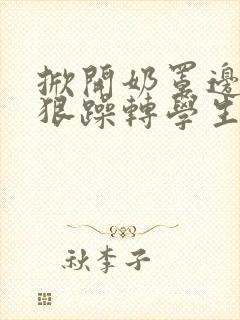 掀開奶罩邊
狠躁轉學生
秋李子